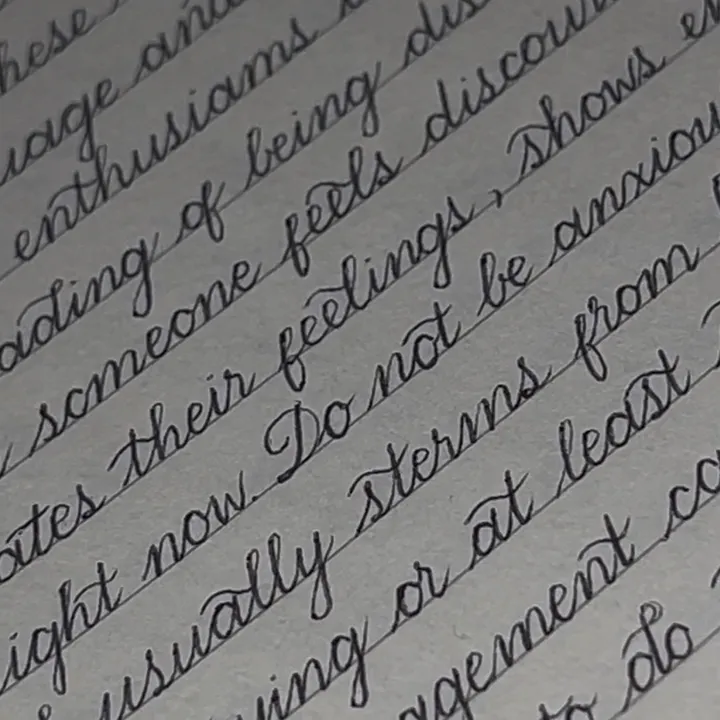 hese
uage and
enthusiams
ading of being dis
someone feels discour
ates their feelings, shows en
ight now. Do not be anxiou
usually sterms from
ying or at least
agement co
to do